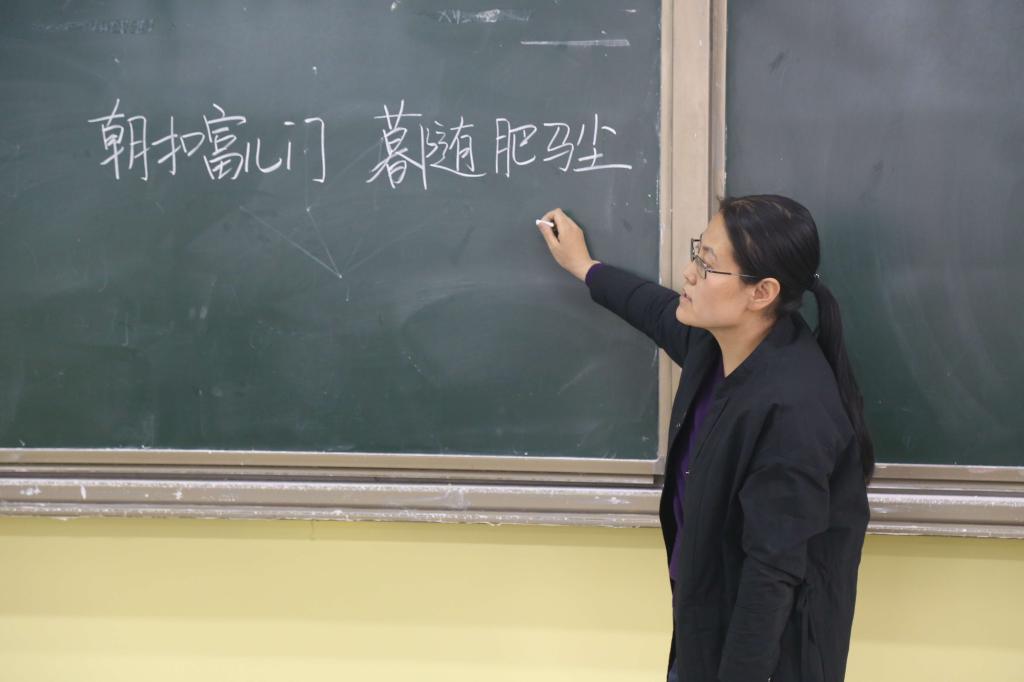 朝扣富儿门 暮随肥马尘